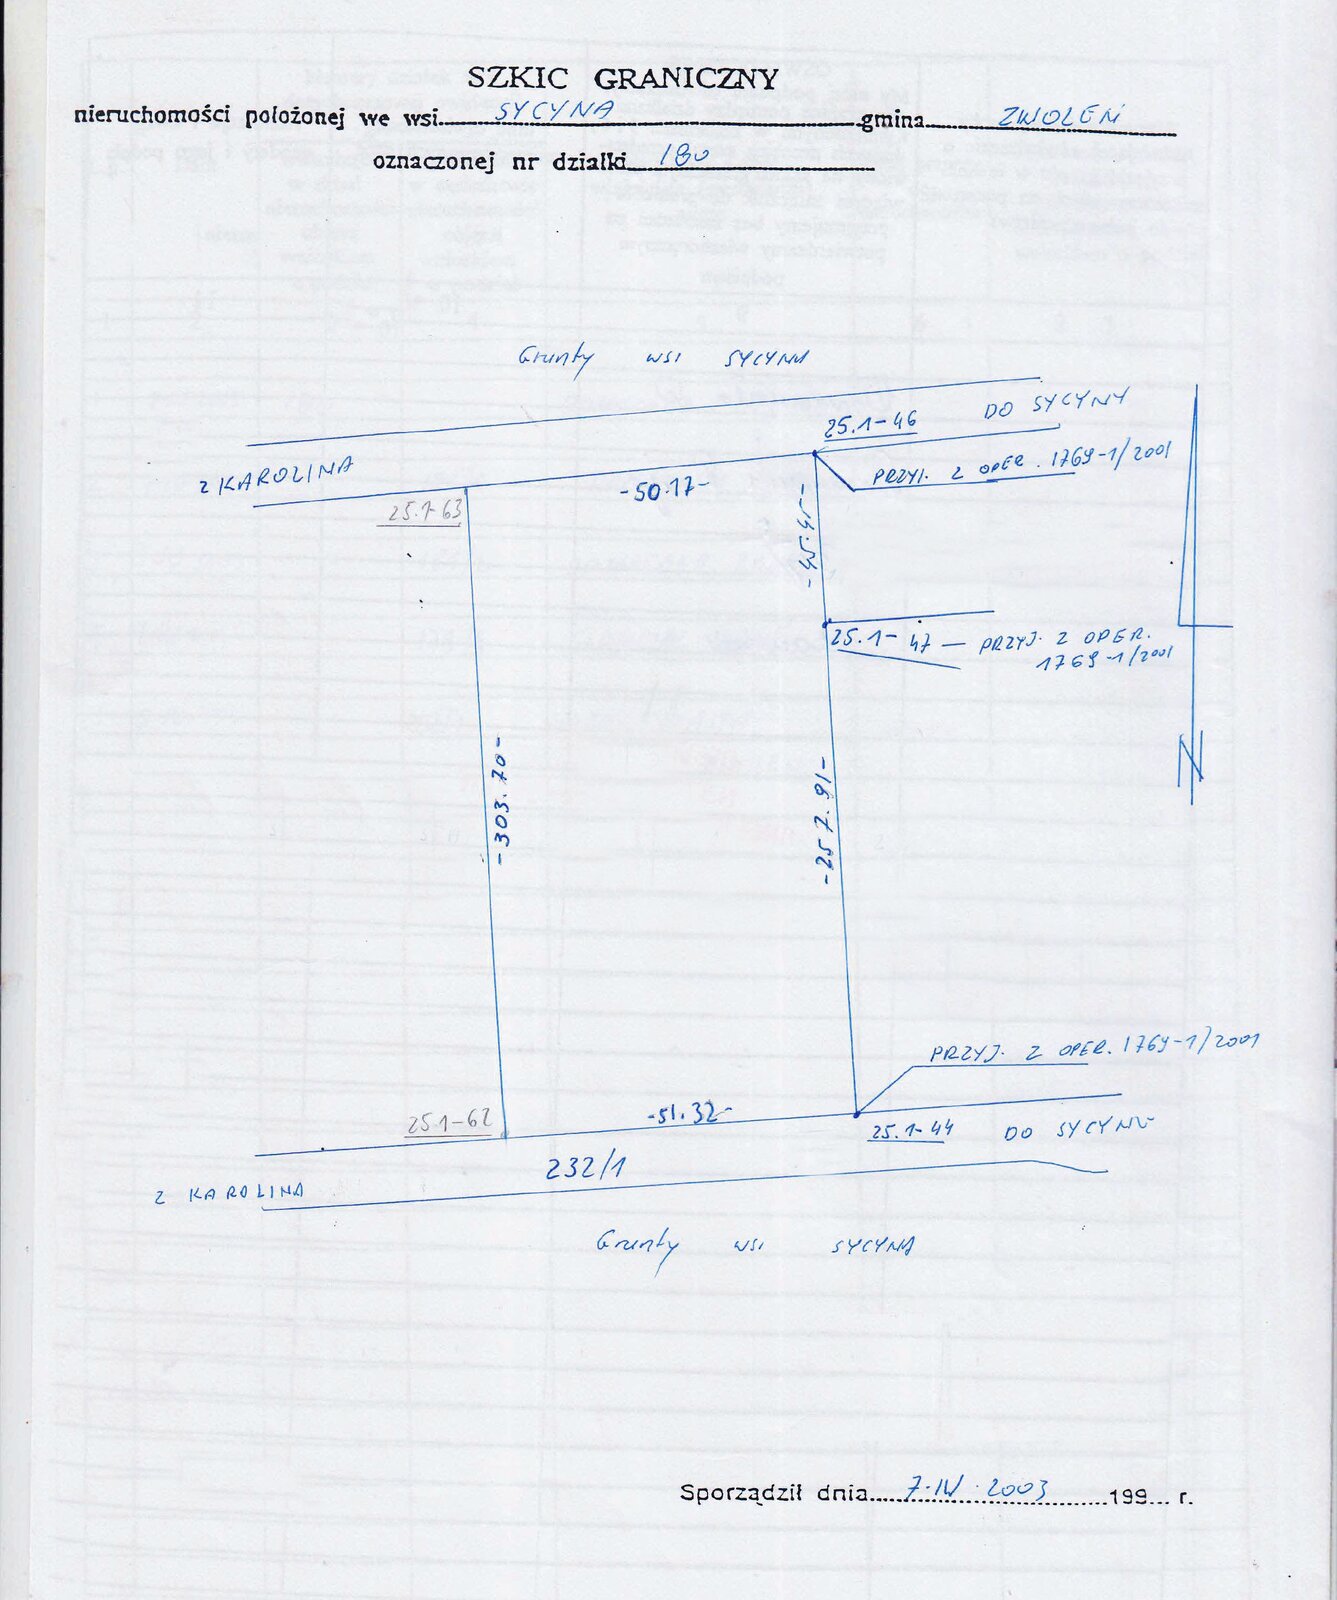 SZKIC GRANICZNY
nieruchomości położonej we wsi SYCYNA gmina ZWOLEŃ
oznaczonej nr działki 180
Grunty wsi SYCYNA
DO SYCYNY
25.1-46
Z KAROLINA
PRZYJ. Z OPER. 1769-1/2001
-50.17-
25.1-63
-45.45-
25.1-47 — PRZYJ. Z OPER.
1769-1/2001
-303.70-
-257.91-
N
PRZYJ. Z OPER. 1769-1/2001
25.1-62
-51.32-
25.1-44 DO SYCYNY
232/1
Z KAROLINA
Grunty wsi SYCYNA
Sporządził dnia 7.IV.2003 199... r.